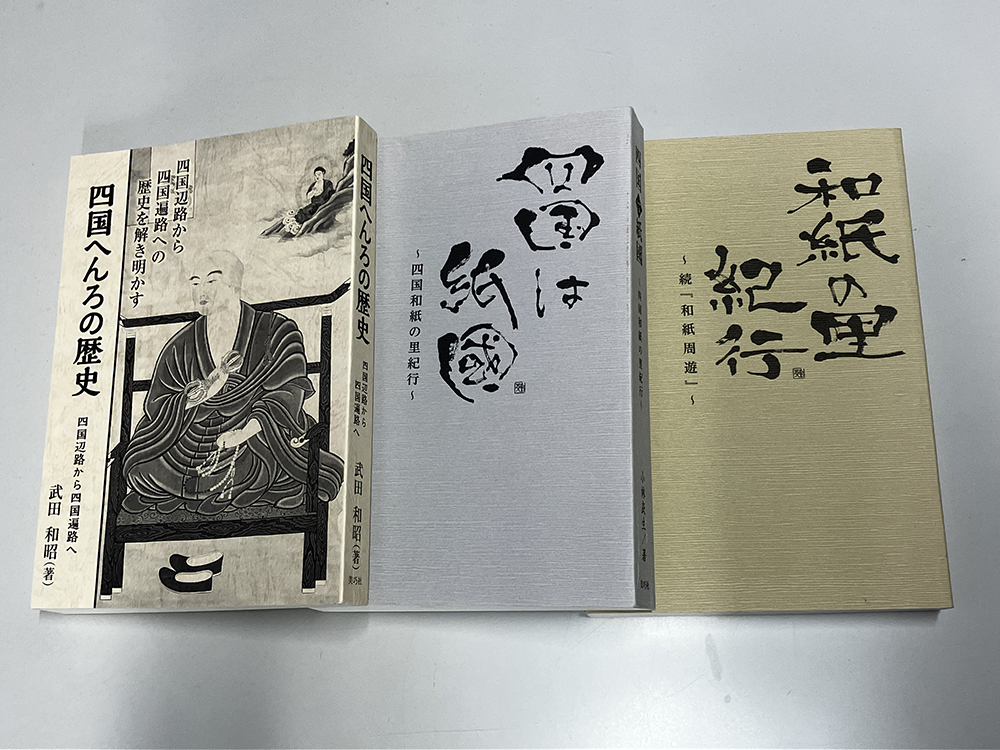 四国辺路から
四国遍路への
歴史を解き明かす
四国へんろの歴史
四国辺路から四国遍路へ
武田 和昭(著)
四国へんろの歴史
四国辺路から
四国遍路へ
武田 和昭(著)
美巧社
四国は
紙國
~四国和紙の里紀行~
四国は紙國
~四国和紙の里紀行~
小林良生/著
美巧社
和紙の里
紀行
~続『和紙周遊』~